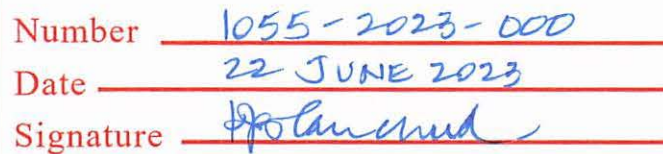 Number 1055-2023-000
Date 22 JUNE 2023
Signature